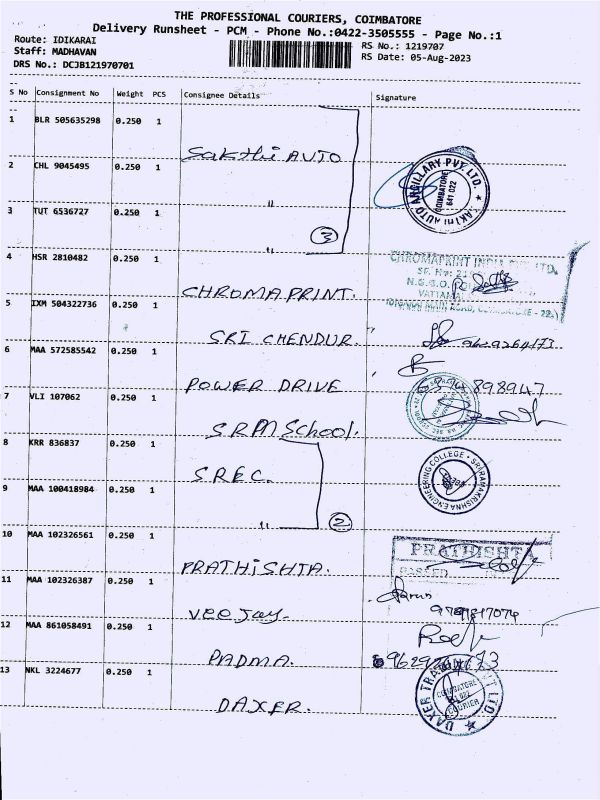 THE PROFESSIONAL COURIERS, COIMBATORE
Delivery Runsheet - PCM - Phone No.:0422-3505555 - Page No.:1
Route: IDIKARAI
Staff: MADHAVAN
DRS No.: DCJB121970701
RS No.: 1219707
RS Date: 05-Aug-2023
S No Consignment No Weight PCS Consignee Details Signature
1 BLR 505635298 0.250 1
Sakthi AUTO
2 CHL 9045495 0.250 1
"
AUTO ANCILLARY PVT. LTD.
COIMBATORE
641 022
3 TUT 6536727 0.250 1
" 3
4 HSR 2810482 0.250 1
CHROMAPRINT INDIA LTD.
CHROMA PRINT.
5 IXM 504322736 0.250 1
SRI CHENDUR.
6 MAA 572585542 0.250 1
POWER DRIVE
7 VLI 107062 0.250 1
SRM School.
8 KRR 836837 0.250 1
S.R.E.C.
SRI RAMAKRISHNA ENGINEERING COLLEGE
9 MAA 100418984 0.250 1
" 2
10 MAA 102326561 0.250 1
PRATHISHTA.
PRATHISHTA
PASSED
11 MAA 102326387 0.250 1
Vee Jay.
12 MAA 861058491 0.250 1
PADMA.
13 NKL 3224677 0.250 1
DAXER.
DAXER
COIMBATORE
COURIER